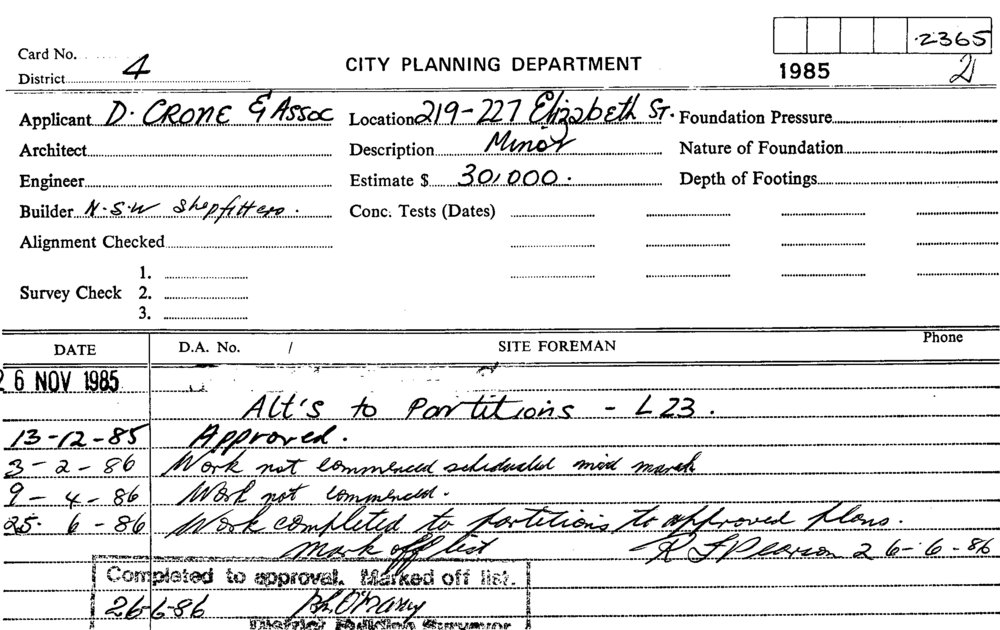 2365
Card No.
District 4
CITY PLANNING DEPARTMENT
1985
2
Applicant D. CRONE & ASSOC
Location 219-227 Elizabeth St.
Foundation Pressure
Architect
Description Minor
Nature of Foundation
Engineer
Estimate $ 30,000.
Depth of Footings
Builder N.S.W Shopfitters.
Conc. Tests (Dates)
Alignment Checked
1.
Survey Check 2.
3.
DATE D.A. No. / SITE FOREMAN Phone
26 NOV 1985
Alt's to Partitions - L23.
13-12-85 Approved.
3-2-86 Work not commenced scheduled mid march
9-4-86 Work not commenced.
25.6-86 Work completed to partitions to approved plans.
Mark off list
Pearson 26-6-86
Completed to approval. Marked off list.
26-6-86
District Building Surveyor